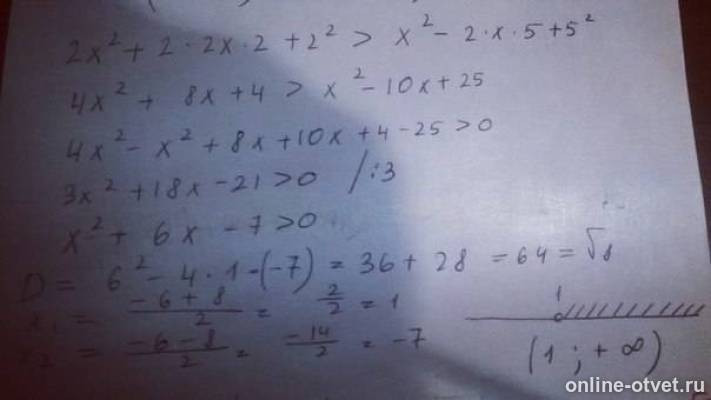 2x² + 2 · 2x · 2 + 2² > x² - 2 · x · 5 + 5²
4x² + 8x + 4 > x² - 10x + 25
4x² - x² + 8x + 10x + 4 - 25 > 0
3x² + 18x - 21 > 0 /:3
x² + 6x - 7 > 0
D = 6² - 4 · 1 - (-7) = 36 + 28 = 64 = √8
x₁ = (-6 + 8)/2 = 2/2 = 1
x₂ = (-6 - 8)/2 = -14/2 = -7
1
(1 ; + ∞)
online-otvet.ru